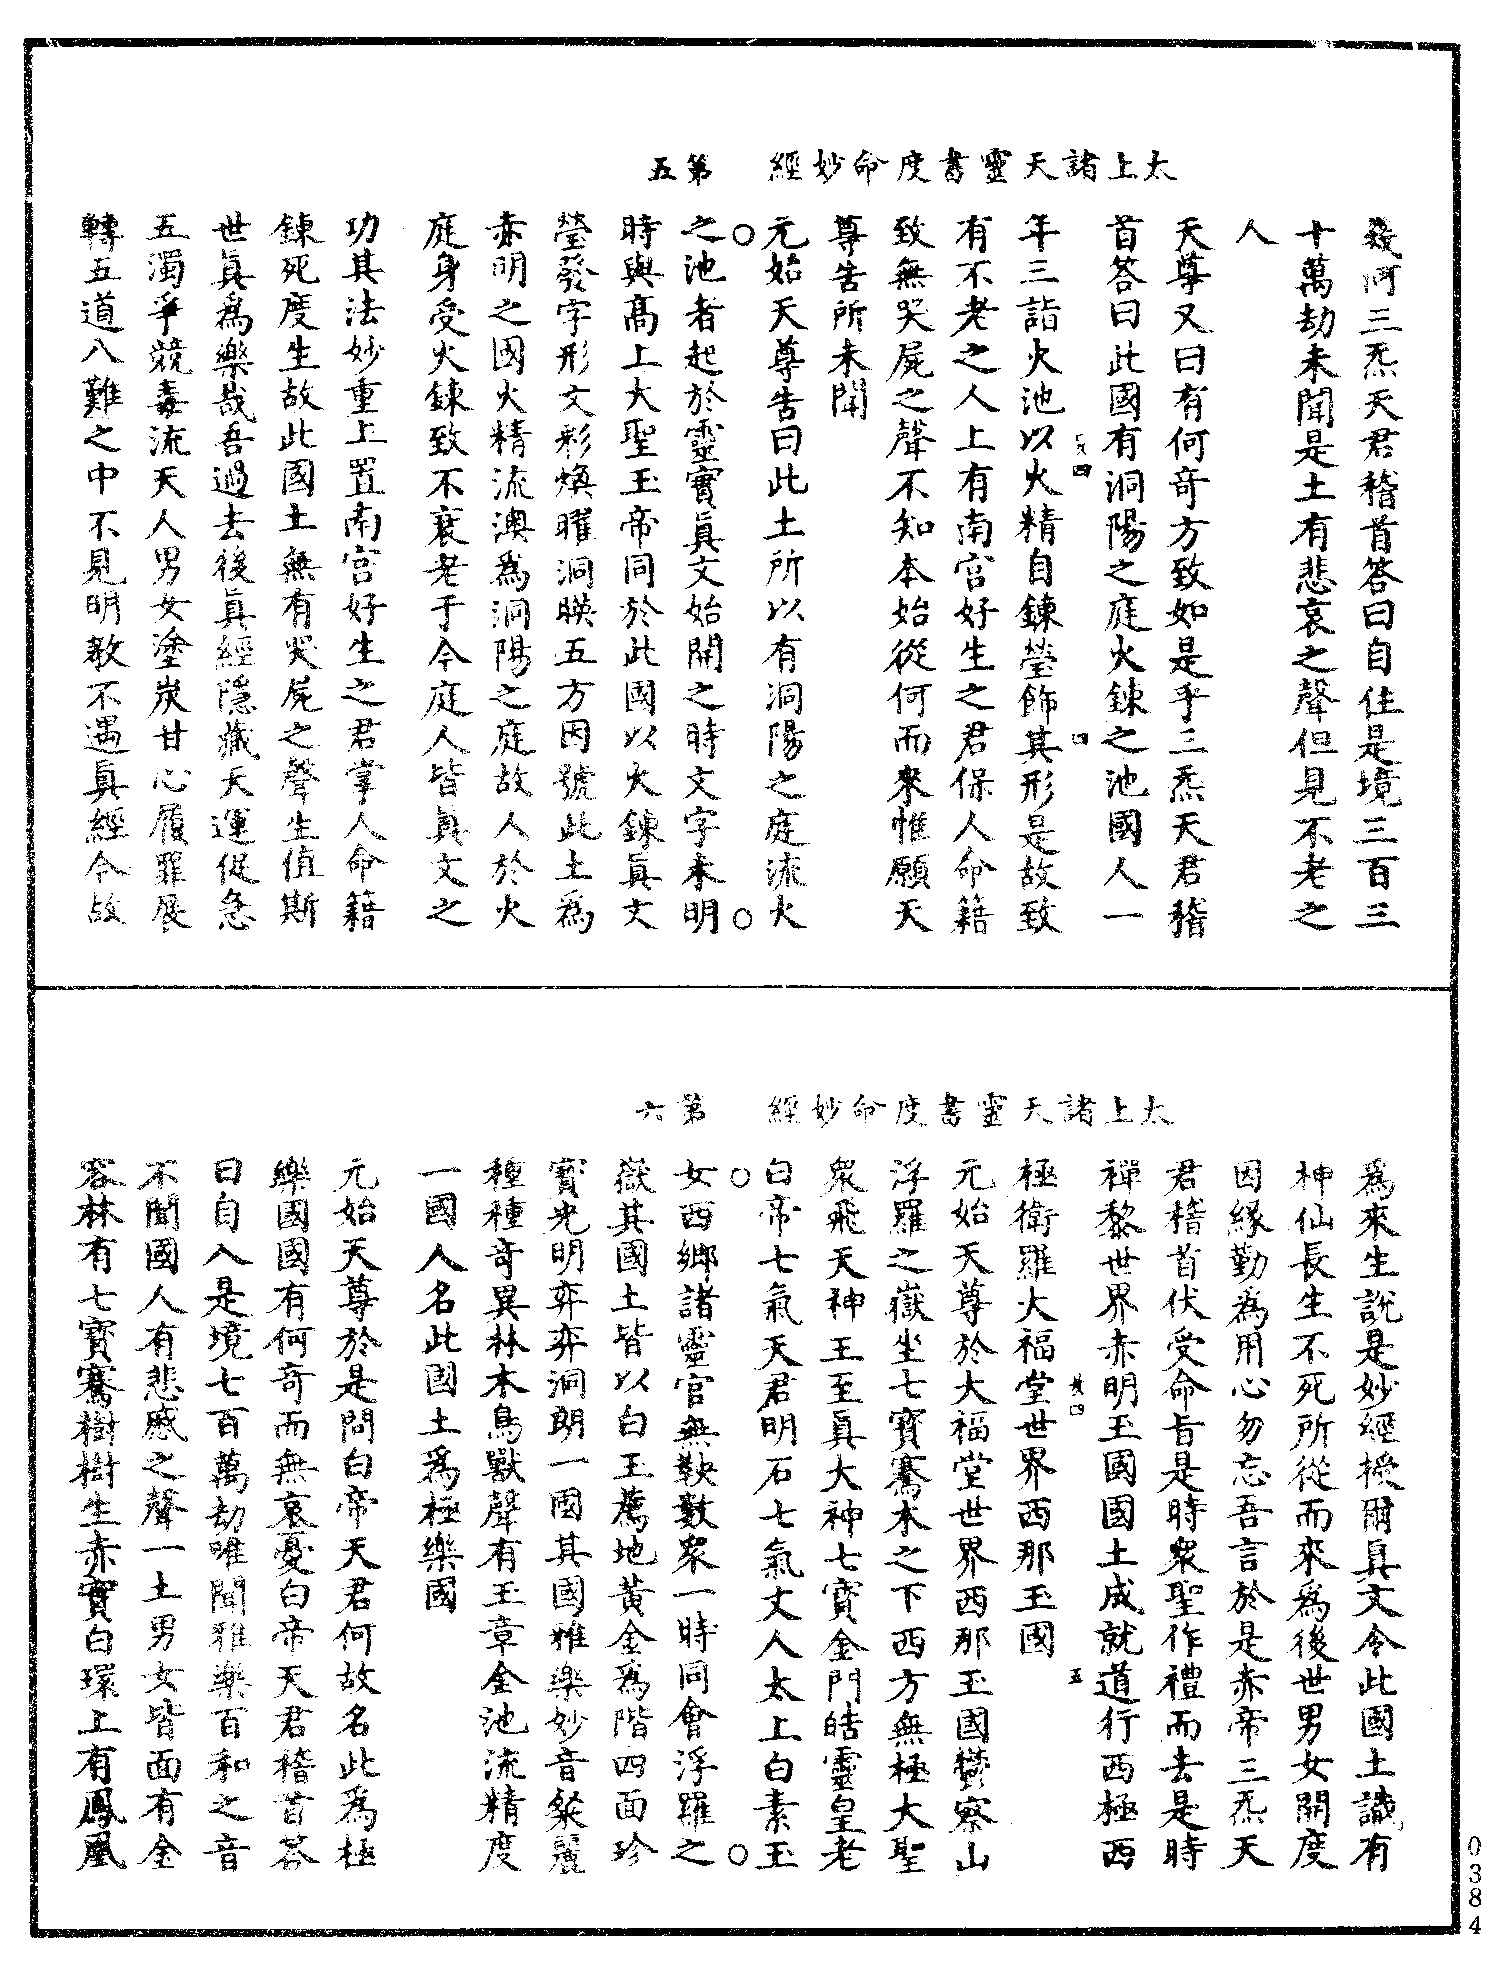 太上諸天靈書度命妙經　第五
幾何三炁天君稽首答曰自住是境三百三
十萬劫未聞是土有悲哀之聲但見不老之
人
天尊又曰有何奇方致如是乎三炁天君稽
首答曰此國有洞陽之庭火鍊之池國人一
年三詣火池以火精自鍊瑩飾其形是故致
有不老之人上有南宮好生之君保人命籍
致無哭屍之聲不知本始從何而來惟願天
尊告所未聞
元始天尊告曰此土所以有洞陽之庭流火
之池者起於靈寶真文始開之時文字未明
時與高上大聖玉帝同於此國以火鍊真文
瑩發字形文彩煥曜洞暎五方因號此土為
赤明之國火精流澳為洞陽之庭故人於火
庭身受火鍊致不衰老于今庭人皆真文之
功其法妙重上置南宮好生之君掌人命籍
鍊死度生故此國土無有哭屍之聲生值斯
世真為樂哉吾過去後真經隱藏天運促急
五濁爭競毒流天人男女塗炭甘心履罪展
轉五道八難之中不見明教不遇真經今故
太上諸天靈書度命妙經　第六
為來生說是妙經授爾真文令此國土識有
神仙長生不死所從而來為後世男女開度
因緣勤為用心勿忘吾言於是赤帝三炁天
君稽首伏受命旨是時眾聖作禮而去是時
禪黎世界赤明玉國國土成就道行西極西
極衛羅大福堂世界西那玉國
元始天尊於大福堂世界西那玉國欝察山
浮羅之嶽坐七寶騫木之下西方無極大聖
眾飛天神王至真大神七寶金門皓靈皇老
白帝七氣天君明石七氣丈人太上白素玉
女西鄉諸靈官無鞅數眾一時同會浮羅之
嶽其國土皆以白玉為地黃金為階四面珍
寶光明弈弈洞朗一國其國雅樂妙音粲麗
種種奇異林木鳥獸聲有玉章金池流精度
一國人名此國土為極樂國
元始天尊於是問白帝天君何故名此為極
樂國國有何奇而無哀憂白帝天君稽首答
曰自入是境七百萬劫唯聞雅樂百和之音
不聞國人有悲慼之聲一土男女皆面有金
容林有七寶騫樹樹生赤實白環上有鳳凰
0384